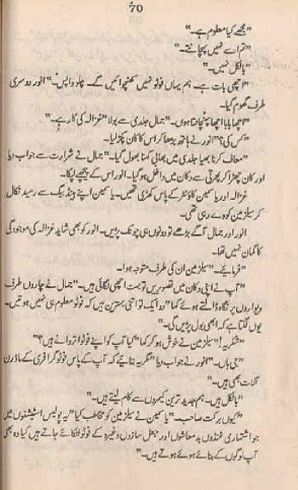 70
"مجھے کیا معلوم ہے۔"
"تم اسے نہیں پہچانتے۔"
"بالکل نہیں۔"
"اچھی بات ہے، ہم یہاں فوٹو نہیں کھنچوائیں گے۔ چلو واپس۔" انور دوسری
طرف گھوم گیا۔
"اچھا بابا اچھا پہچانتا ہوں۔" جمال جلدی سے بولا "غزالہ کی کار ہے۔"
"کس کی؟" انور نے ہاتھ بڑھا کر اس کا کان پکڑ لیا۔
"معاف کرنا بھیا جلدی میں بھابی کہنا بھول گیا۔" جمال نے شرارت سے جواب دیا
اور کان چھڑا کر پھرتی سے دکان میں داخل ہو گیا۔ انور اس کے پیچھے لپکا۔
غزالہ اور یاسمین کاؤنٹر کے پاس کھڑی تھیں۔ یاسمین اپنے ہینڈ بیگ سے رسید نکال
کر سیلز مین کو دے رہی تھی۔
انور اور جمال آگے بڑھے تو دونوں ہی چونک پڑیں۔ انور کو بھی شاید غزالہ کی موجودگی
کا گمان نہیں تھا۔
"فرمائیے۔" سیلز مین ان کی طرف متوجہ ہوا۔
"آپ نے اپنی دکان میں تصویریں تو بہت اچھی لگائی ہیں۔" جمال نے چاروں طرف
دیواروں پر نگاہ ڈالتے ہوئے کہا "دو ایک تو اتنی بہترین ہیں کہ فوٹو معلوم ہی نہیں ہوتیں۔
یوں لگتا ہے کہ ابھی بول پڑیں گی۔"
"شکریہ! سیلز مین نے خوش ہو کر کہا "کیا آپ کو اپنے فوٹو اتروانے ہیں؟"
"جی ہاں۔" انور نے جواب دیا "مگر یہ بتائیے کہ آپ کے پاس فوٹو گرافری کے ماڈرن
آلات بھی ہیں۔"
"بالکل ہیں۔ ہم جدید ترین کیمروں سے کام لیتے ہیں۔"
"کیوں برکت صاحب۔" یاسمین نے سیلز مین کو مخاطب کیا "یہ پولیس اسٹیشنوں میں
جو اشتہاری غنڈوں بدمعاشوں اور جعل سازوں وغیرہ کے فوٹو لٹکائے جاتے ہیں کیا وہ بھی
آپ لوگوں کے بنائے ہوئے ہوتے ہیں۔"